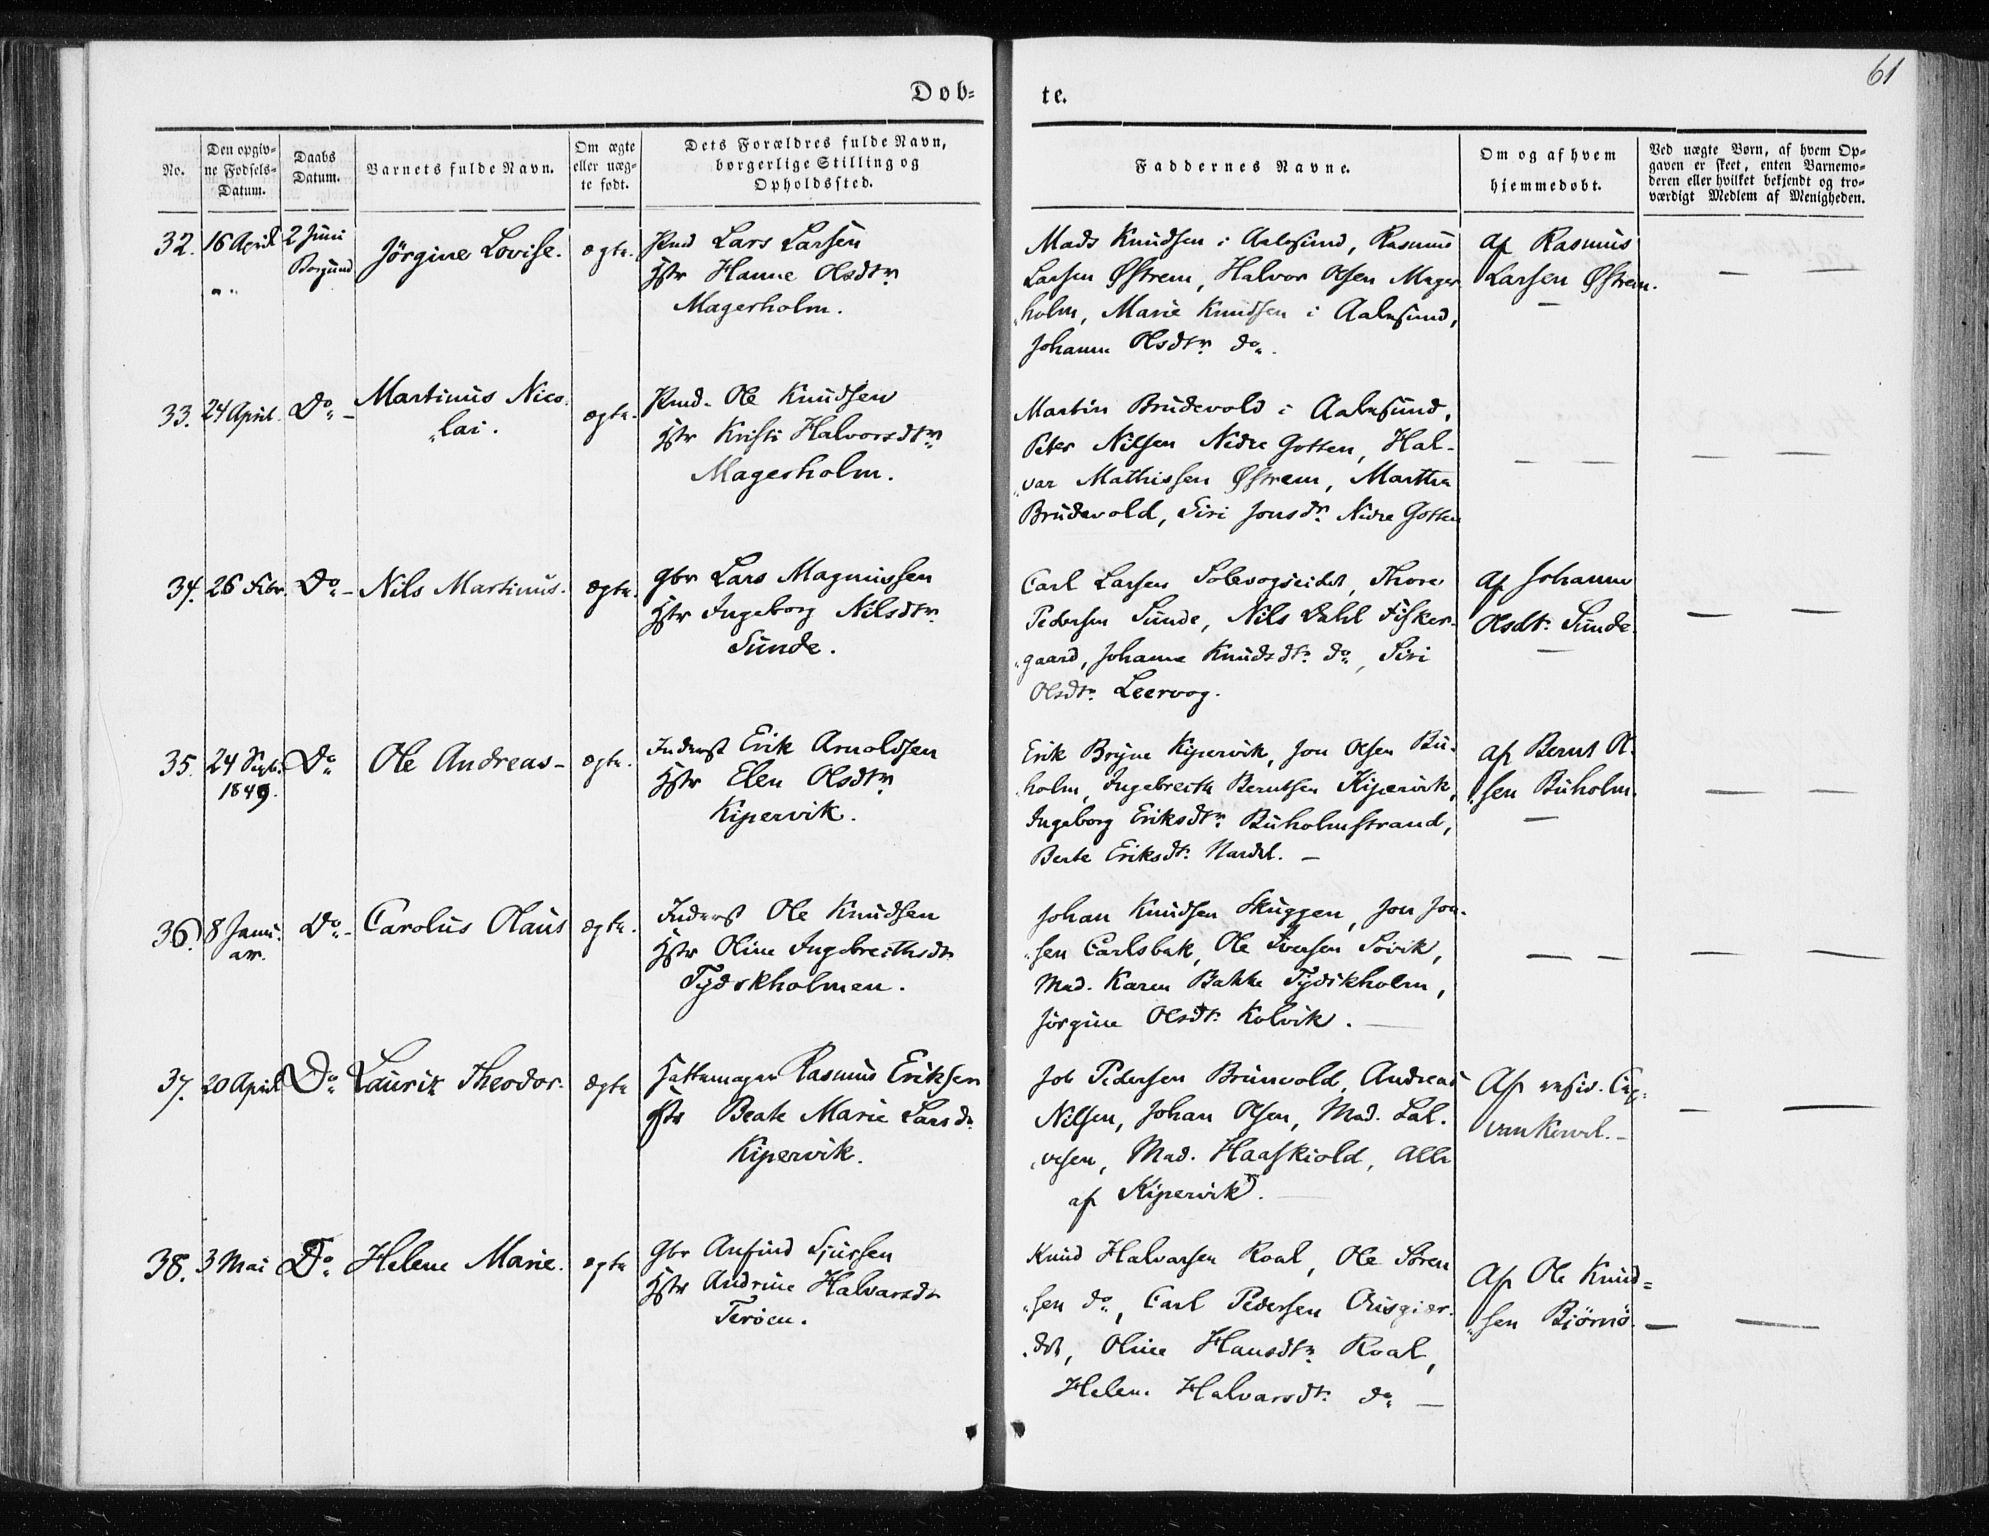 61
Døb-
te.
No.
Den opgiv-
ne Fødsels-
Datum.
Daabs
Datum.
Barnets fulde Navn.
Om ægte
eller uæg-
te født.
Dets Forældres fulde Navn,
borgerlige Stilling og
Opholdssted.
Faddernes Navne.
Om og af hvem
hjemmedøbt.
Ved uægte Børn, af hvem Op-
gaven er skeet, enten Barnemo-
deren eller hvilket bekjendt og tro-
værdigt Medlem af Menigheden.
32. 16 April
2 Juni
Borgund
Jörgine Lovise.
ægte.
Lars Larsen
Hstr Hanne Olsdtr
Magerholm.
Mads Knudsen i Aalesund, Rasmus
Larsen Østrem, Halvor Olsen Mager
holm, Marie Knudsen i Aalesund,
Johanne Olsdtr do.
Af Rasmus
Larsen Østrem.
33. 24 April. Do -
Martinus Nico-
lai.
ægte.
Ole Knudsen
Hstr Kristi Halvorsdtr
Magerholm.
Martin Brudevold i Aalesund,
Peter Nilsen Nedre Gotten, Hal-
var Mathissen Østrem, Martha
Brudevold, Siri Jonsdr Nedre Gotten
34. 26 Febr. Do -
Nils Martinus.
ægte.
Gbr Lars Magnussen
Hstr Ingeborg Nilsdtr
Sunde.
Carl Larsen Solevogseidet, Thore
Pedersen Sunde, Nils Dahl Fisker-
gaard, Johanne Knudsdtr do, Siri
Olsdtr Leervog.
Af Johanne
Olsdtr Sunde.
35. 24 Septr
1849.
Do
Ole Andreas -
ægte.
Inderst Erik Arnoldsen
Hstr Elen Olsdtr
Kipervik.
Erik Bryne Kipervik, Jon Olsen Bu-
holm, Ingebreith Berntsen Kipervik,
Ingeborg Eriksdtr Buholmstrand,
Berte Eriksdtr -
Af Bernt Ol-
sen Buholm.
36. 8 Janu-
ar.
Do -
Carolus Olaus
ægte.
Inderst Ole Knudsen
Hstr Oline Ingebreithsdtr
Tydskholmen.
Johan Knudsen Skuggen, Jon Jon-
sen Carlsbak, Ole Iversen Søvik,
Mad. Karen Bakke Tydskholm,
Jörgine Olsdtr Kolvik. -
37. 20 April Do
Lauritz Theodor.
ægte
Hattemager Rasmus Eriksen
Hstr Beate Marie Larsdr
Kipervik.
Job Pedersen Brunvold, Andreas
Nilsen, Johan Olsen, Mad. Sal-
vesen, Mad. Haaskiold, Alle
af Kipervik. -
Af resid. Cap.
38. 3 Mai Do
Helene Marie.
ægte
Gbr Anfind Sjursen
Hstr Andrine Halvarsdtr
Terøen.
Knud Halvarsen Roal, Ole Søren
sen do, Carl Pedersen Ousgier-
det, Oline Hansdtr Roal,
Helene Halvarsdtr do -
Af Ole Knud=
sen Bjørnö. -